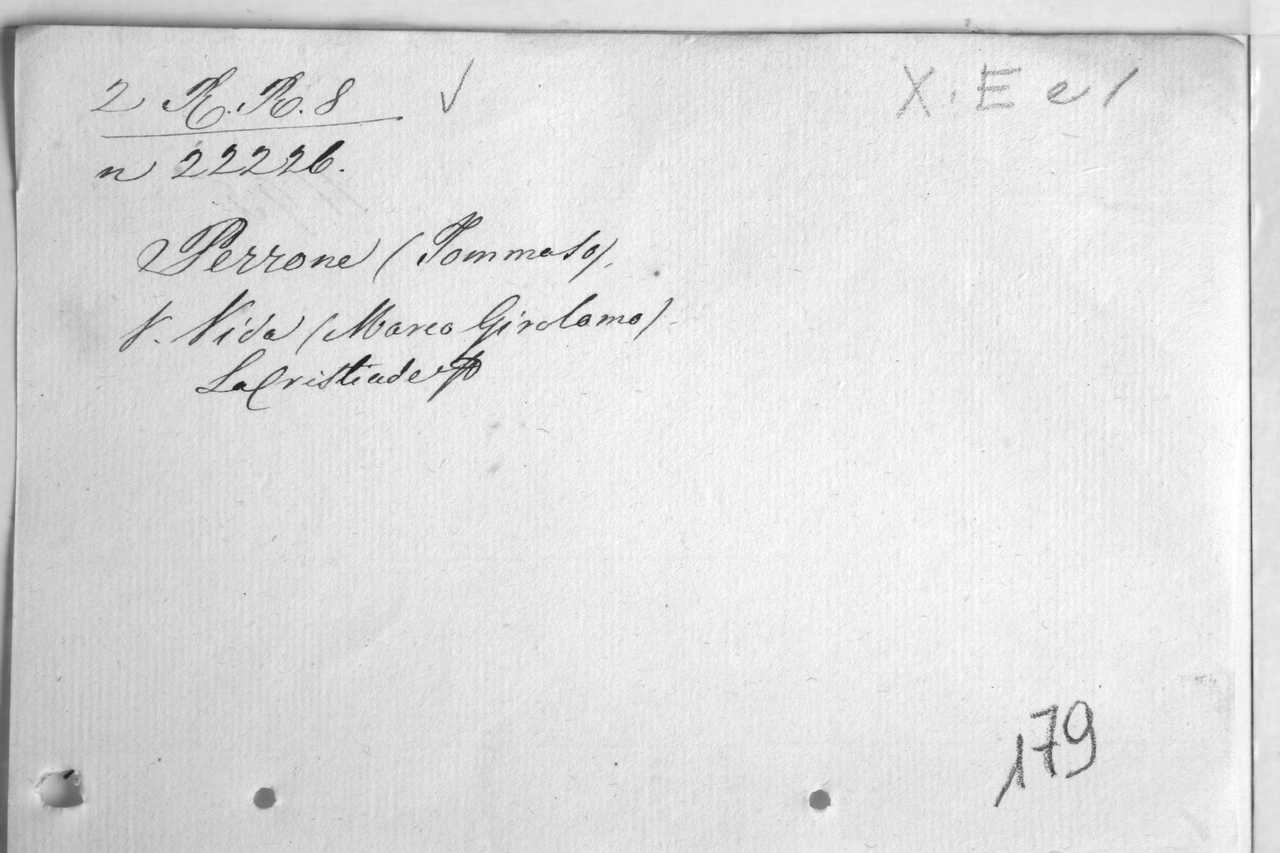 2 R.R.8 √ X. E e 1
n 22226.
Perrone (Tommaso).
V. Vida (Marco Girolamo).
La Cristiade
179